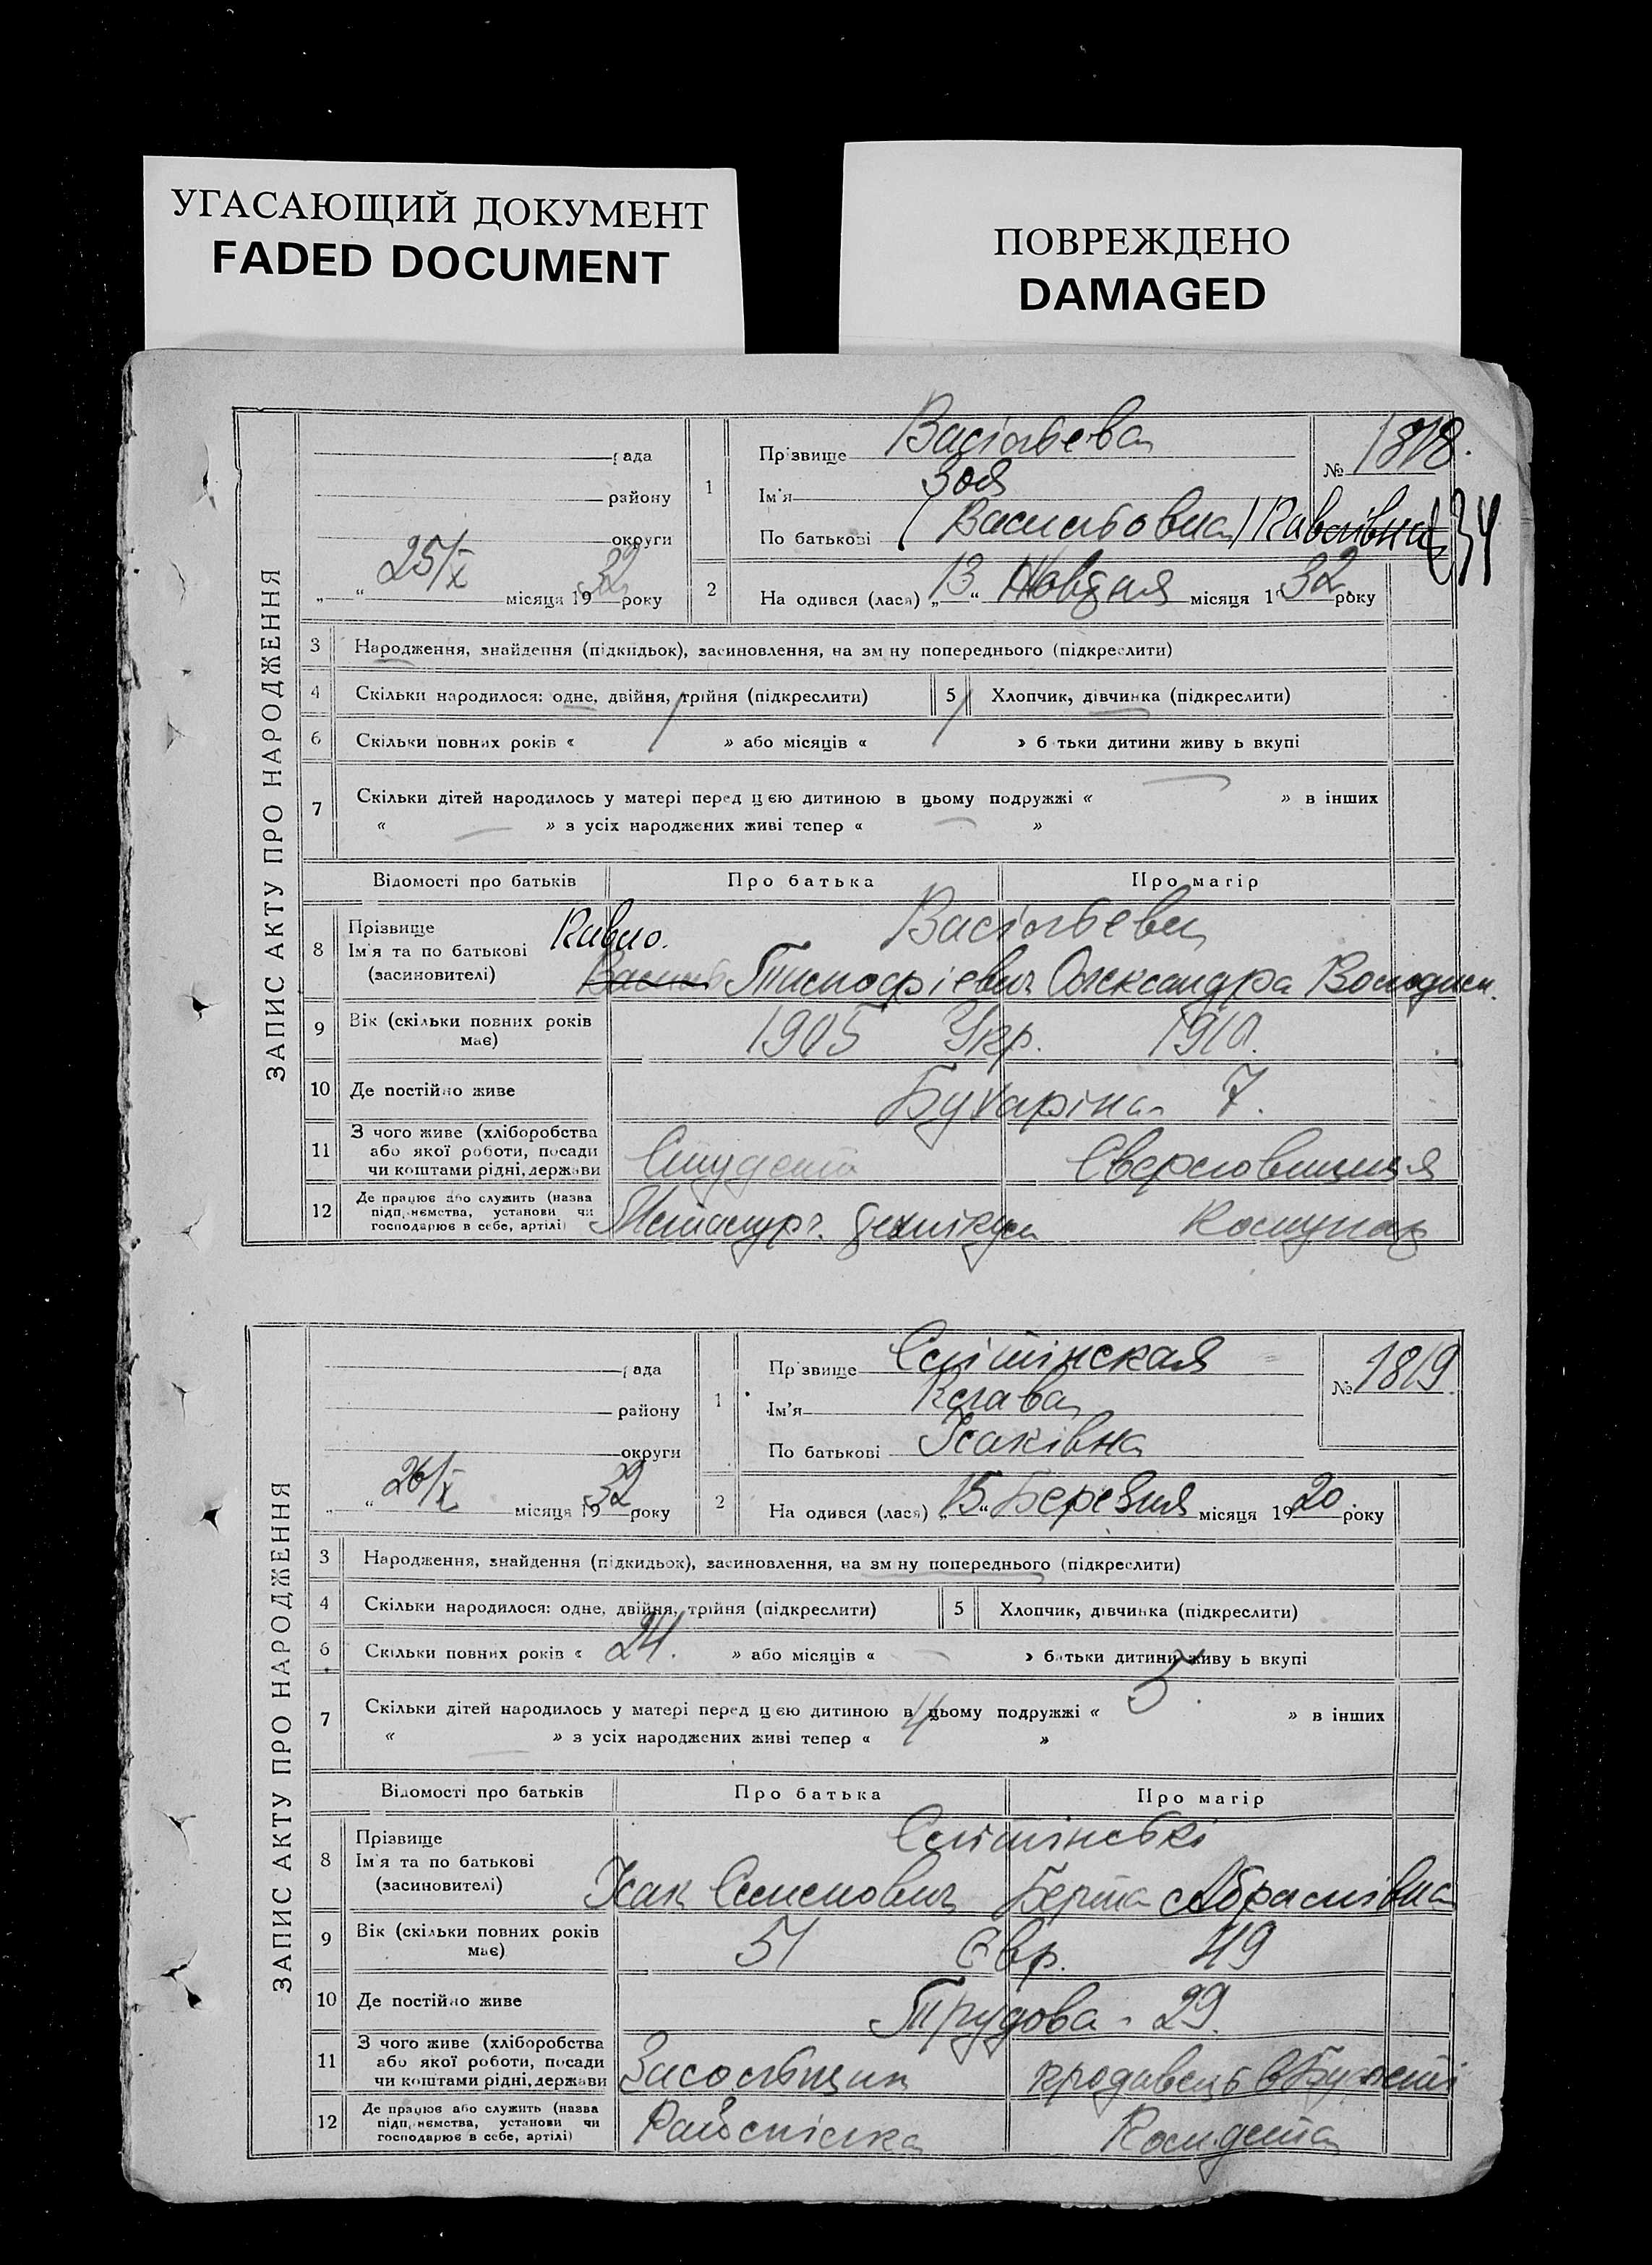 УГАСАЮЩИЙ ДОКУМЕНТ
FADED DOCUMENT
ПОВРЕЖДЕНО
DAMAGED
ЗАПИС АКТУ ПРО НАРОДЖЕННЯ
рада
району
округи
„ “ 25/X місяця 1932 року
1
Прізвище Васільєва
Ім'я Зоя
По батькові (Васильовна)
№ 1818.
34
2
На одився (лася) „13“ Жовтня місяця 1932 року
3 Народження, знайдення (підкидьок), засиновлення, на зм ну попереднього (підкреслити)
4 Скільки народилося: одне, двійня, трійня (підкреслити)
5 Хлопчик, дівчинка (підкреслити)
6 Скільки повних років « / » або місяців « / » б тьки дитини живу ь вкупі
7 Скільки дітей народилось у матері перед ц ею дитиною в цьому подружжі « — » в інших
« — » з усіх народжених живі тепер « — »
Відомості про батьків
Про батька
Про матір
8 Прізвище
Ім'я та по батькові
(засиновителі)
Васільєви
Павло.
Тимофієвич Олександра Володим.
9 Вік (скільки повних років має) 1905 Укр. 1910.
10 Де постійно живе Бухаріна 7.
11 З чого живе (хліборобства
або якої роботи, посади
чи коштами рідні, держави
Студент
12 Де працює або служить (назва
підприємства, установи чи
господарює в себе, артілі)
Металург. технікум
ЗАПИС АКТУ ПРО НАРОДЖЕННЯ
рада
району
округи
„ “ 26/X місяця 1932 року
1
Прізвище
Ім'я Клава
По батькові Ісаківна
№ 1819.
2
На одився (лася) „15“ Березня місяця 1920 року
3 Народження, знайдення (підкидьок), засиновлення, на зм ну попереднього (підкреслити)
4 Скільки народилося: одне, двійня, трійня (підкреслити)
5 Хлопчик, дівчинка (підкреслити)
6 Скільки повних років « 24. » або місяців « — » батьки дитини живу ь вкупі
7 Скільки дітей народилось у матері перед ц ею дитиною в цьому подружжі « 5. » в інших
« — » з усіх народжених живі тепер « 4 »
Відомості про батьків
Про батька
Про матір
8 Прізвище
Ім'я та по батькові
(засиновителі)
Ісак Семенович Берта Абрамівна
9 Вік (скільки повних років має) 51 Євр. 49
10 Де постійно живе Трудова - 29.
11 З чого живе (хліборобства
або якої роботи, посади
чи коштами рідні, держави
Засольщик продавець в Буфеті
12 Де працює або служить (назва
підприємства, установи чи
господарює в себе, артілі)
Райспілка